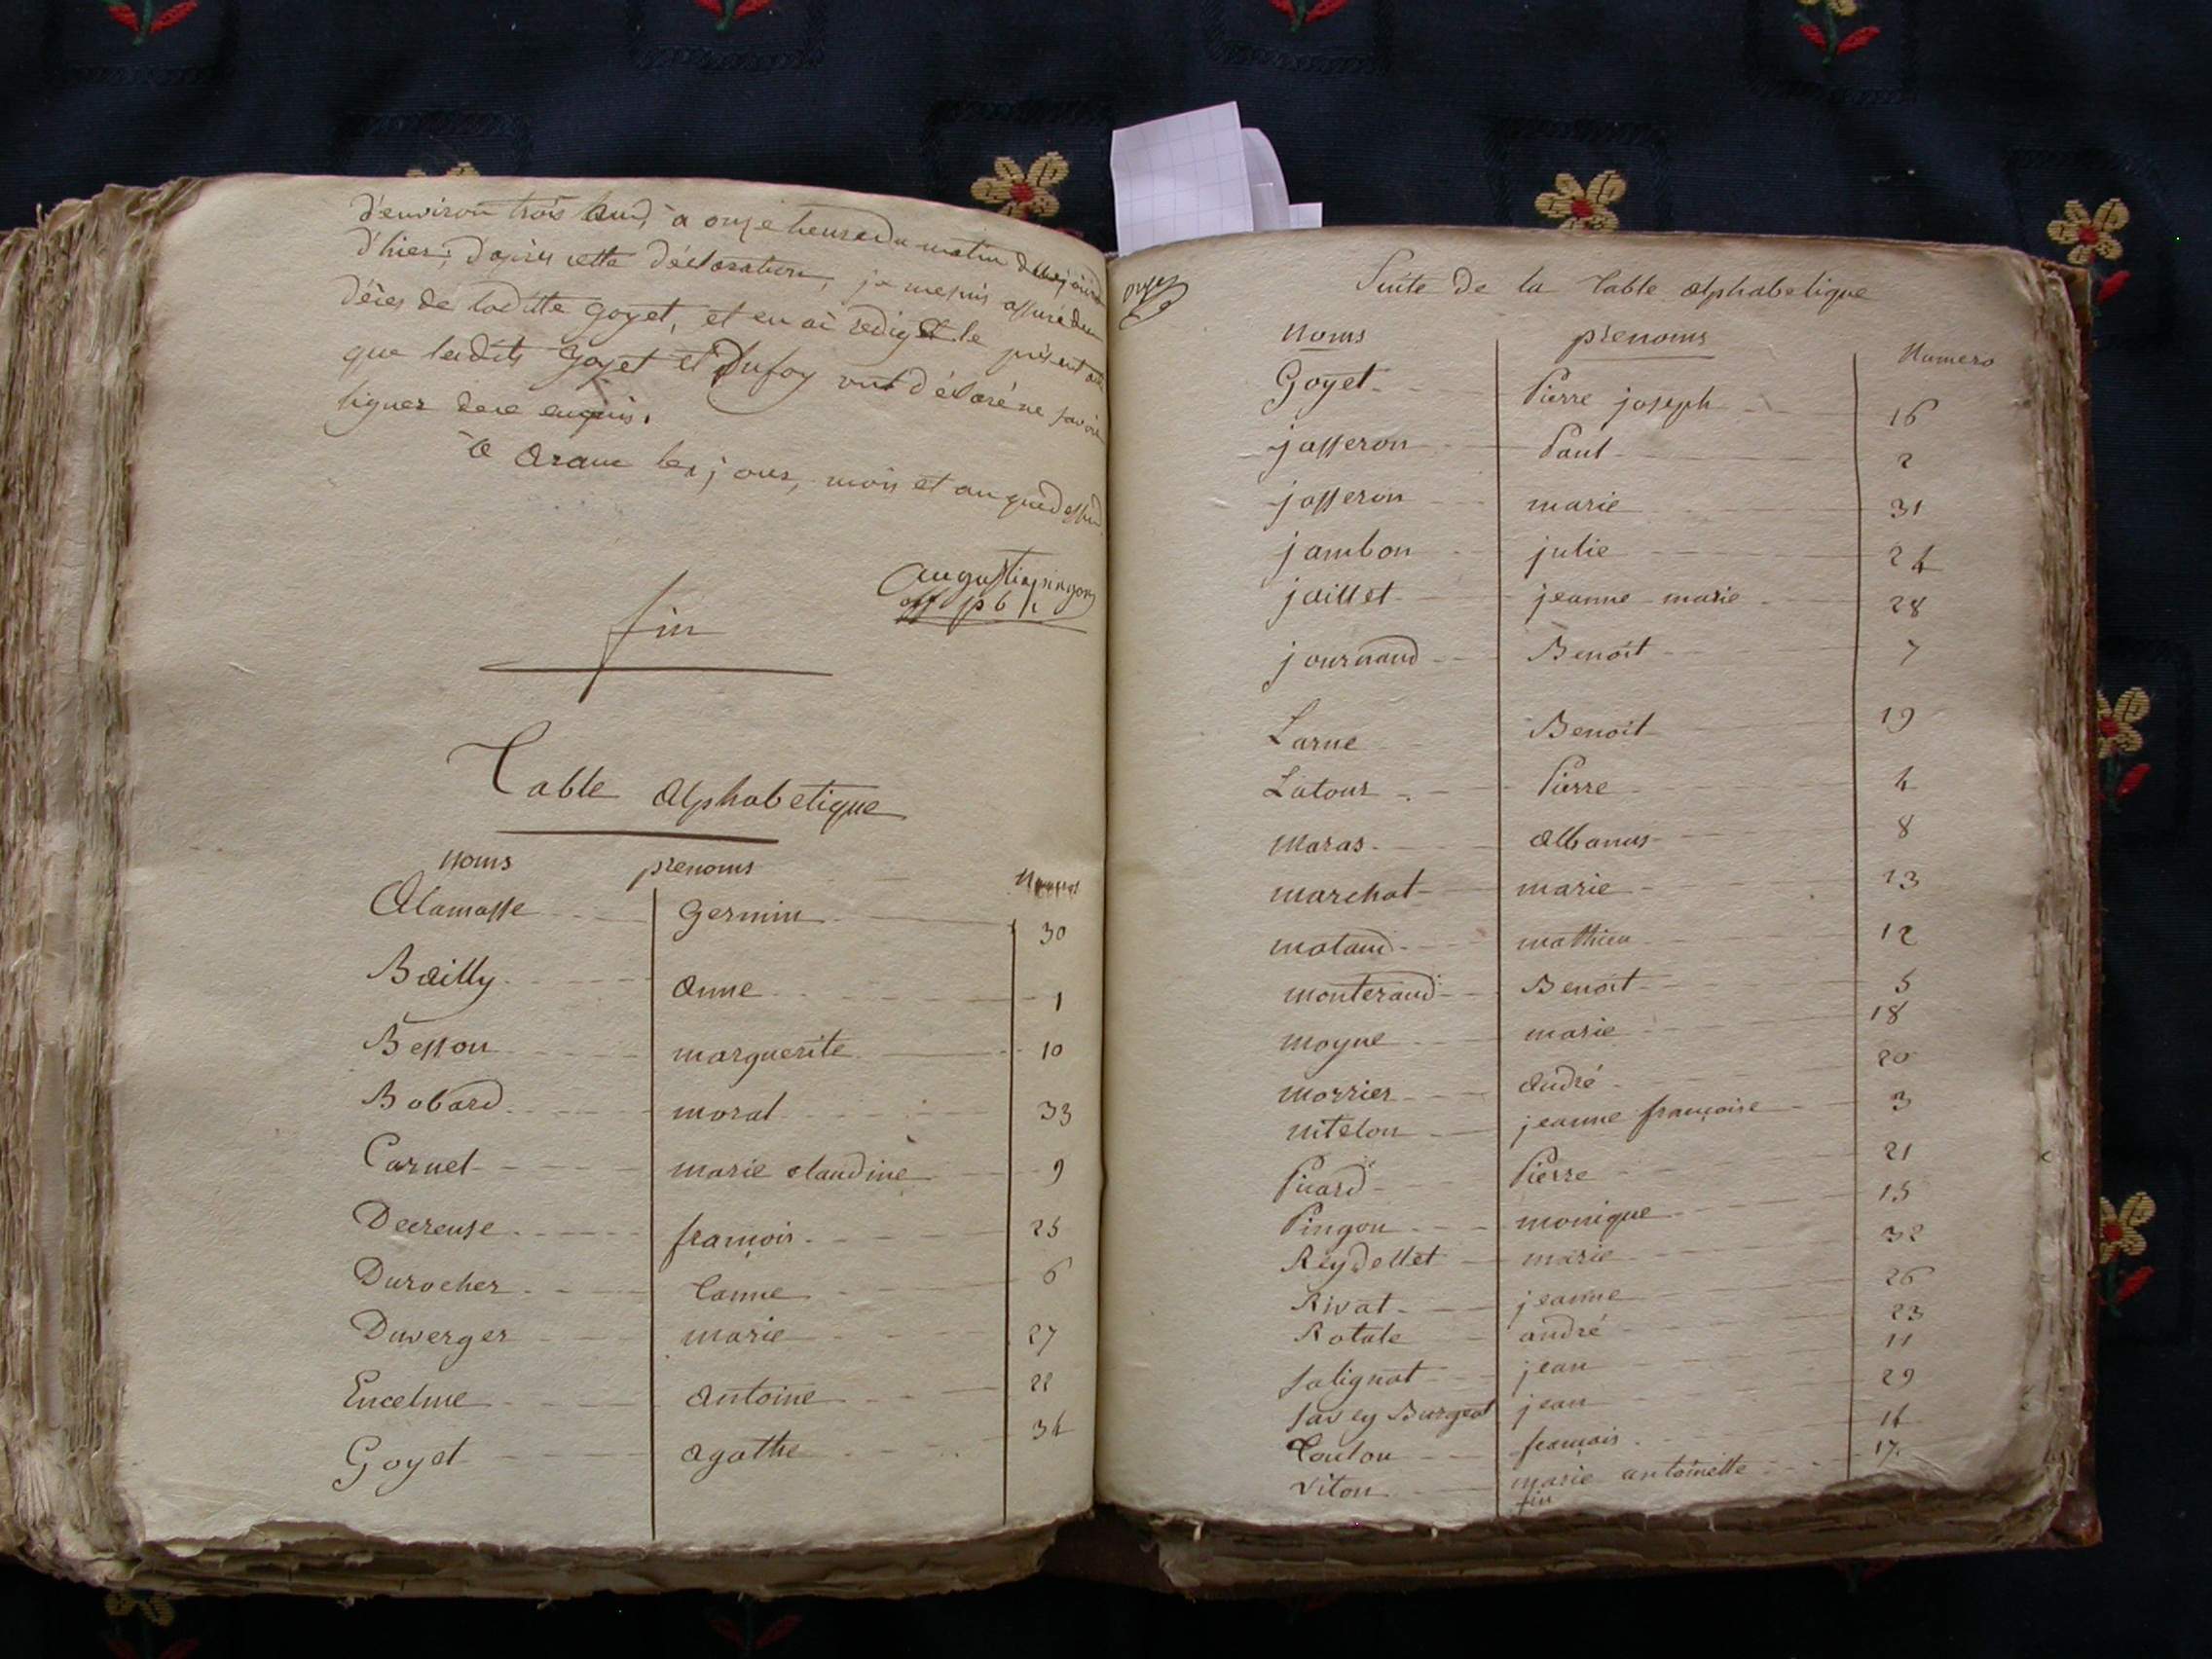 d'environ trois ans, à onze heures du matin du jour
d'hier; d'après cette déclaration, je me suis assuré du
décès de laditte goyet, et en ai redigé le présent acte
que lesdits goyet et Dufoy ont déclaré ne savoir
signer de ce enquis.
à Aranc les jours, mois et an que dessus
augustin pingon
off pb
fin
Table alphabetique
noms prenoms
Alamasse Germin 30
Bailly anne 1
Besson marguerite 10
Bobard moral 33
Carnel marie claudine 9
Decreuse françois 25
Durocher Canne 6
Duverger marie 27
Encelme antoine 22
Goyet agathe 34
onze
Suite de la table alphabetique
noms prenoms Numero
Goyet Pierre joseph 16
jasseron Paul 2
josseron marie 31
jambon julie 24
jaillet jeanne marie 28
journaud Benoit 7
Larue Benoit 19
Latour Pierre 4
maras albanus 8
marchat marie 13
molaud mathieu 12
monteraud Benoit 5
moyne marie 18
morrier andré 20
nitelon jeanne françoise 3
Picard Pierre 21
Pingon monique 15
Reydellet marie 32
Rivat jeanne 26
Rotale andré 23
Salignat jean 11
Savey Burgeat jean 29
Coulon françois 14
viton marie antoinette 17
fin